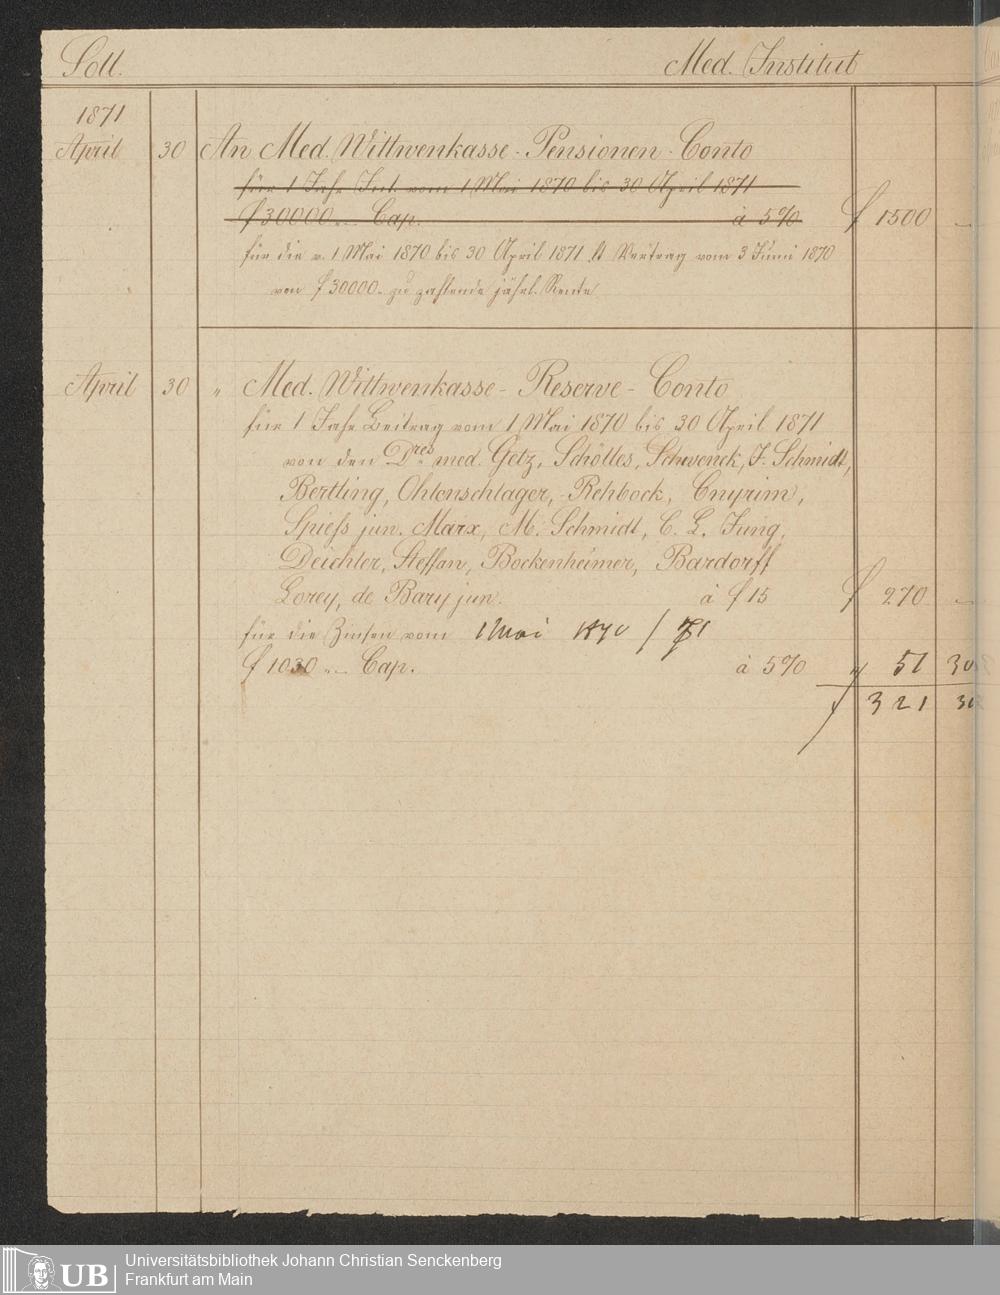 Soll. Med. Institut
1871
April 30 An Med. Wittwenkasse - Pensionen - Conto
für 1 Jahr Int. vom 1 Mai 1870 bis 30 April 1871
f 30000 .. — Cap. à 5% f 1500 —
für die v. 1 Mai 1870 bis 30 April 1871 lt Vertrag vom 3 Juni 1870
von f 30000.- zu zahlende jährl. Rente
April 30 " Med. Wittwenkasse - Reserve - Conto
für 1 Jahr Beitrag vom 1 Mai 1870 bis 30 April 1871
von den Dres med. Getz, Schölles, Schwenck, J. Schmidt,
Bertling, Ohlenschlager, Rehbock, Cnyrim,
Spieſs jun. Marx, M. Schmidt, C. L. Jung,
Deichler, Steffan, Bockenheimer, Bardorff
Lorey, de Bary jun. à f 15 f 270 —
für die Zinsen vom 1 Mai 1870 / 71
f 1030 .. — Cap. à 5% " 51 30
f 321 30
Universitätsbibliothek Johann Christian Senckenberg
Frankfurt am Main
UB